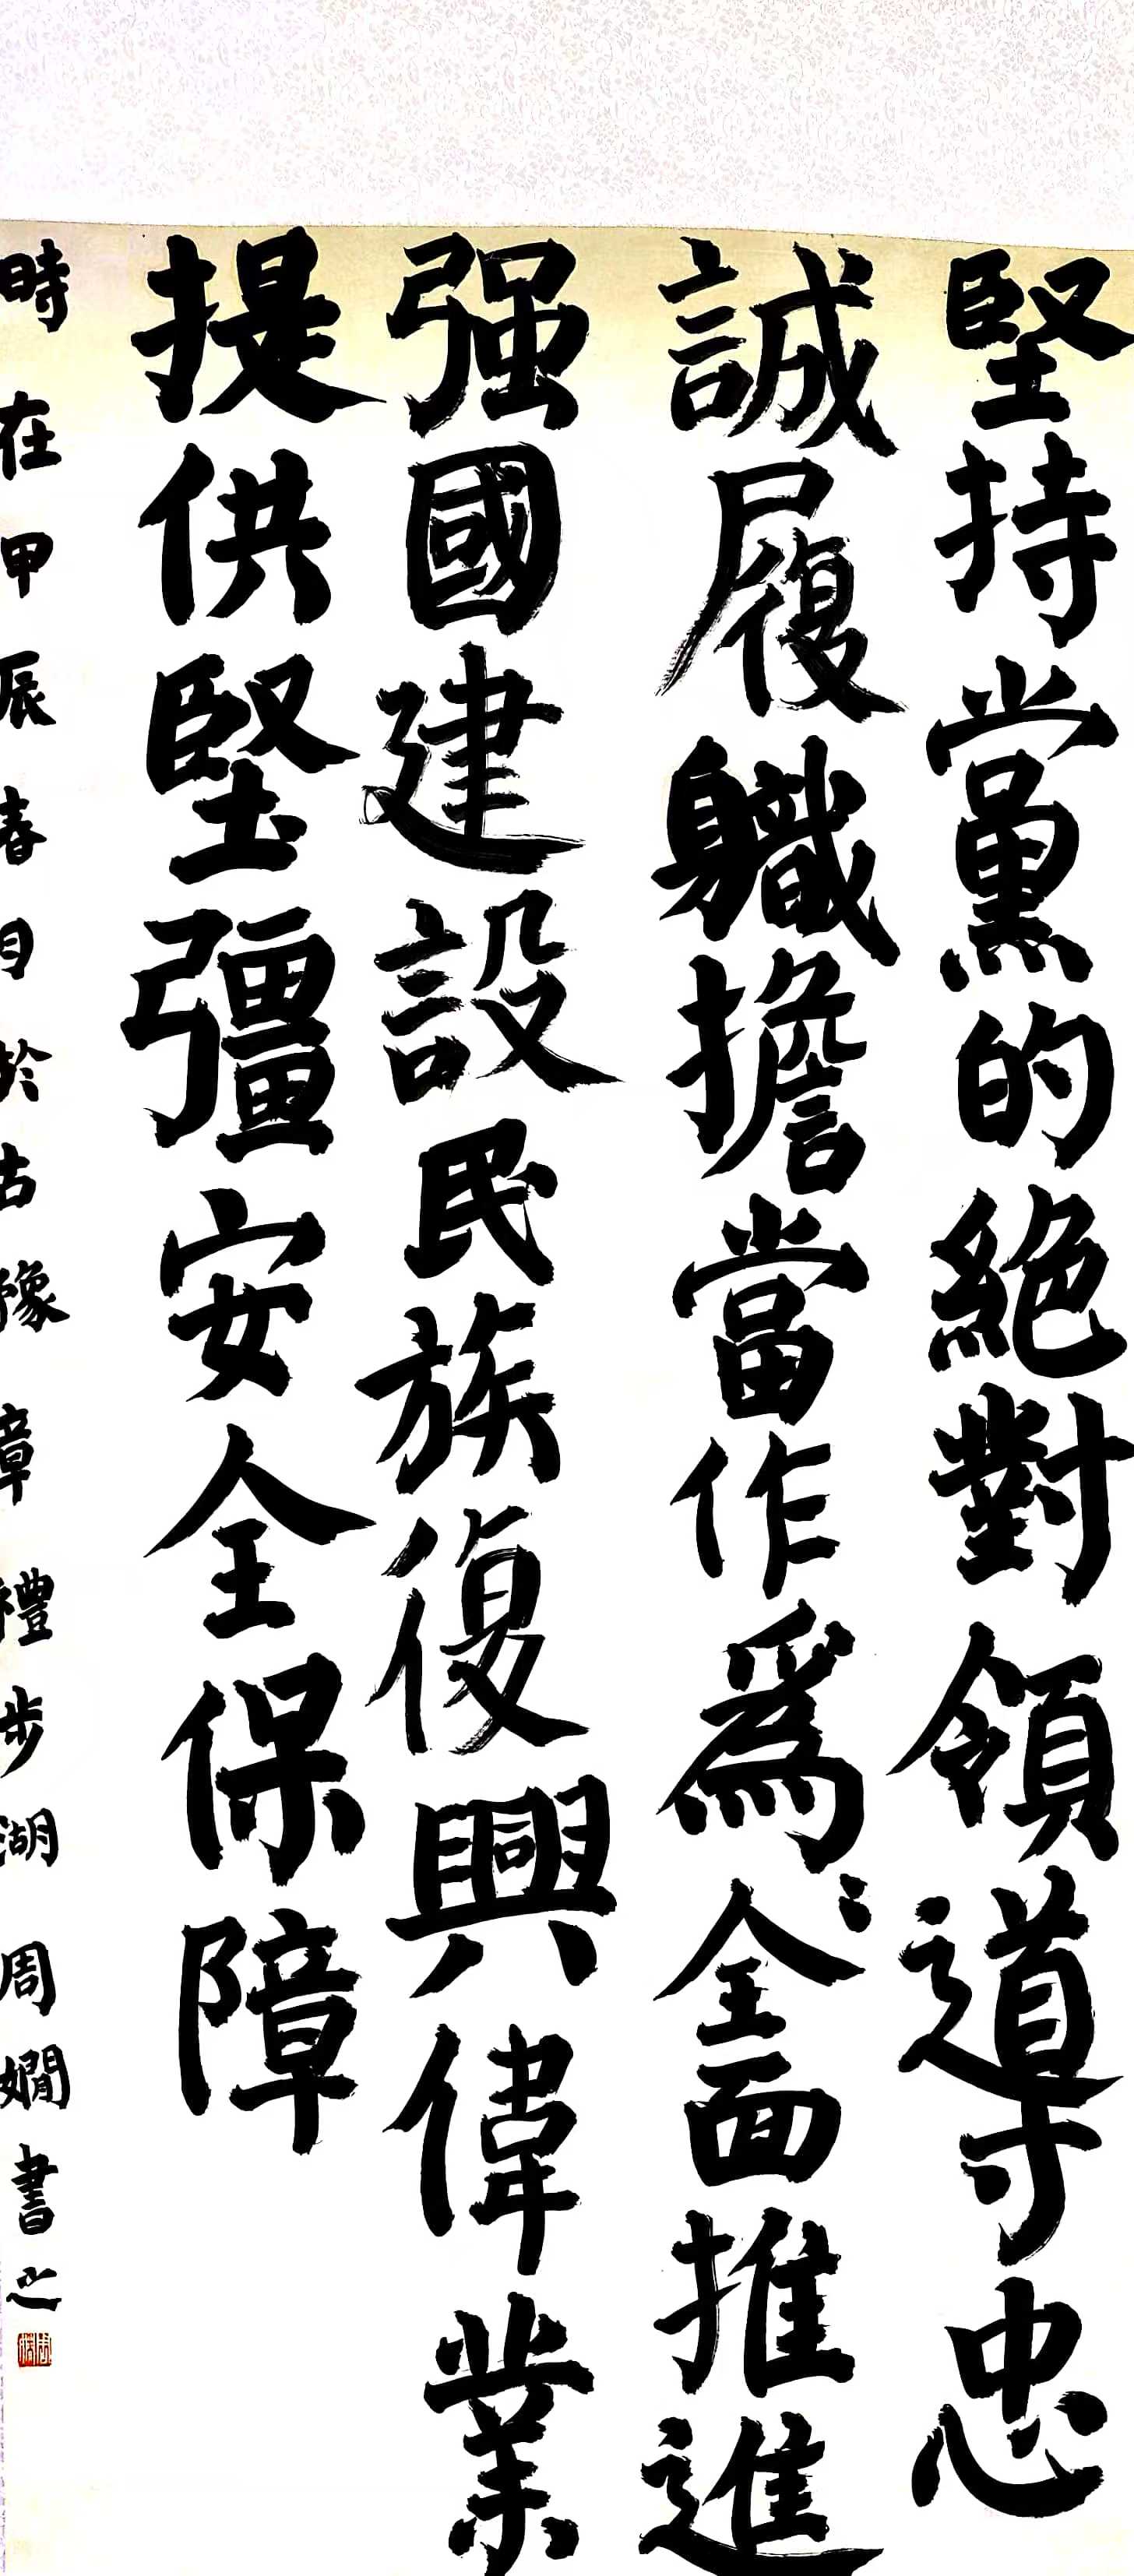 堅持黨的絕對領導忠
誠履軄擔當作爲〻全面推進
强國建設民族復興偉業
提供堅彊安全保障
時在甲辰春月於古豫章禮步湖周嫺書之